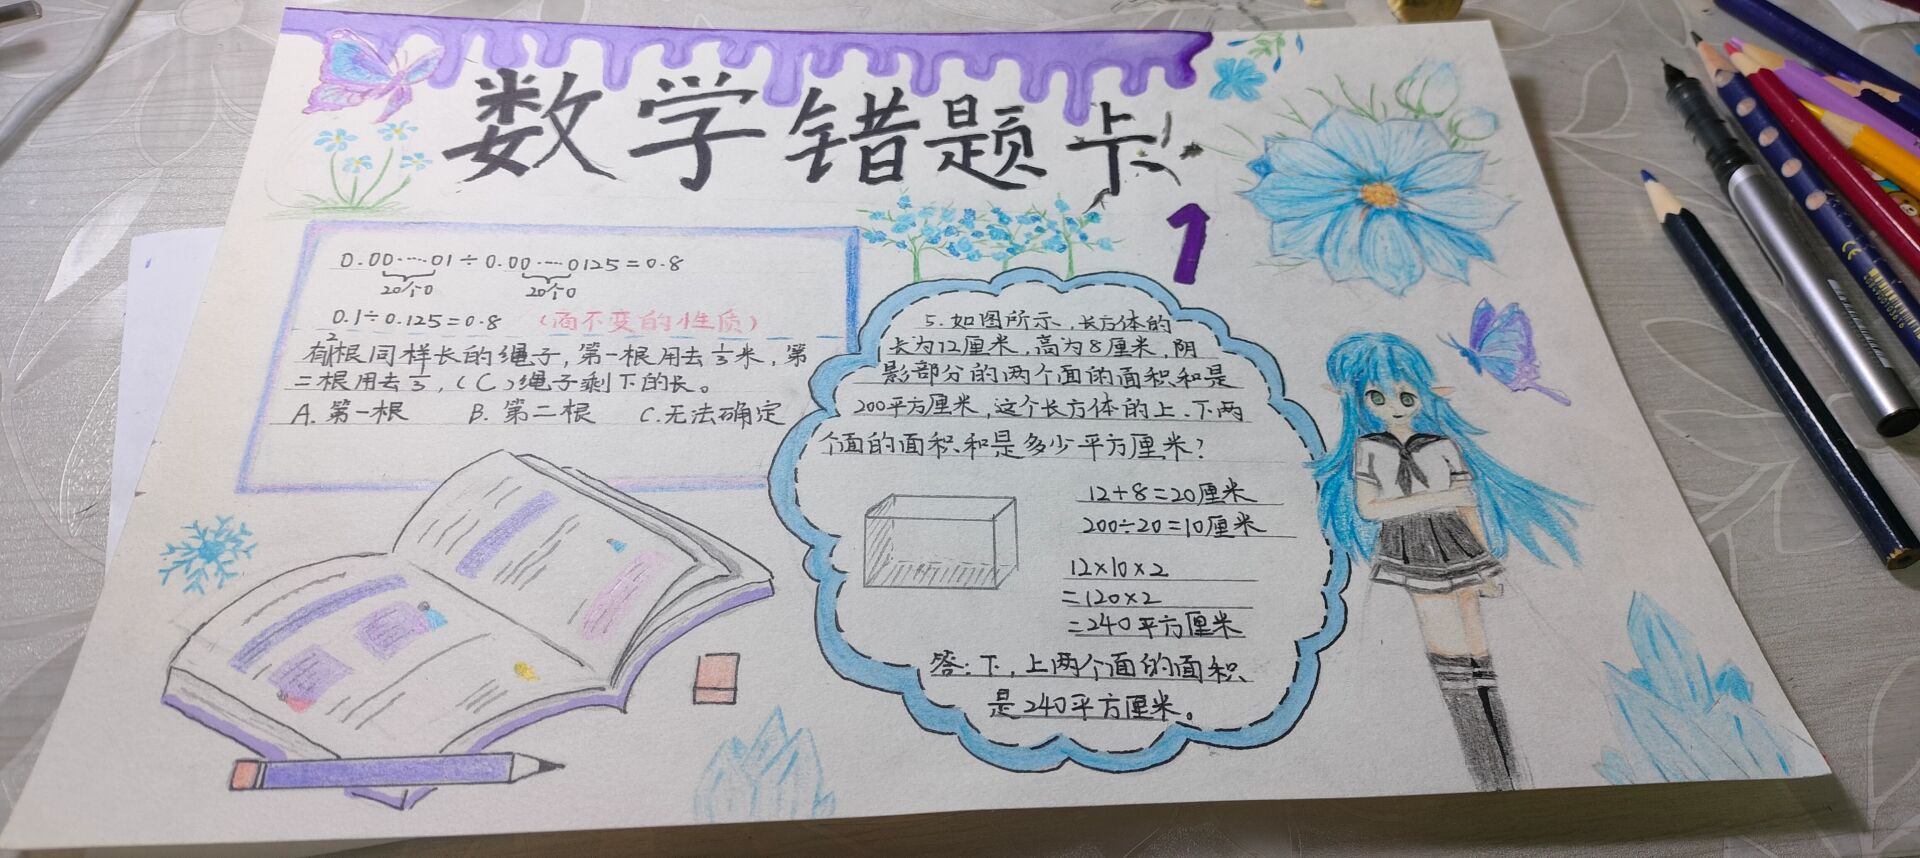 数学错题卡
1
0.00……01÷0.00……0125=0.8
20个0 20个0
0.1÷0.125=0.8 (商不变的性质)
有2根同样长的绳子,第一根用去1/3米,第
二根用去1/3,(C)绳子剩下的长。
A.第一根 B.第二根 C.无法确定
5.如图所示,长方体的
长为12厘米,高为8厘米,阴
影部分的两个面的面积和是
200平方厘米,这个长方体的上、下两
个面的面积和是多少平方厘米?
12+8=20厘米
200÷20=10厘米
12×10×2
=120×2
=240平方厘米
答:下,上两个面的面积
是240平方厘米。